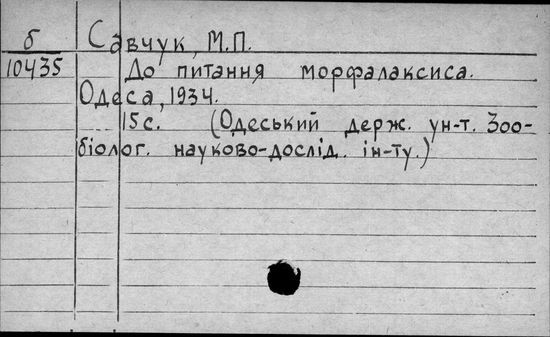 б
10435
Савчук, М.П.
До питання морфалаксиса.
Одеса, 1934.
15 с. (Одеський держ. ун-т. Зоо-
біолог. науково-дослід. ін-ту.)